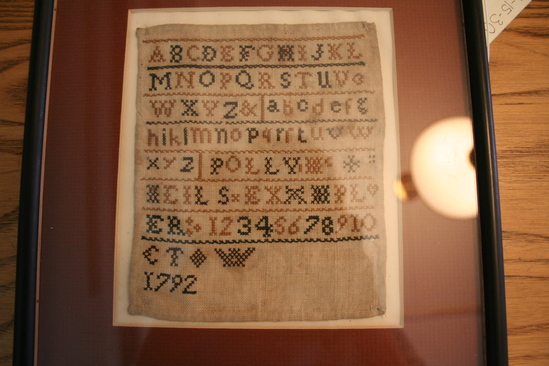 ABCDEFGHIJKL
MNOPQRSTUV
WXYZ&abcdefg
hiklmnopqrstuvw
xyz POLLY
NEILS EXEMPL
ER 12345678910
CT
1792